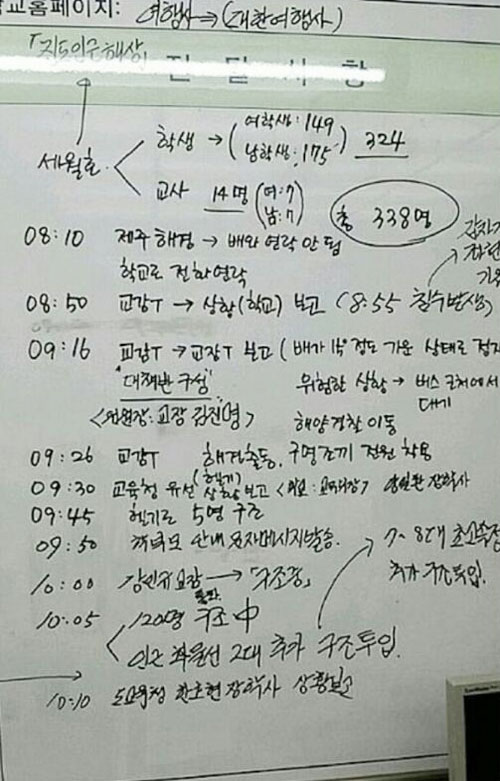 학교홈페이지: 여행사→(대한여행사)
「진도인근해상」
전 달 사 항
세월호
학생 → (여학생: 149
남학생: 175) 324
교사 14명 (여:7
남:7)
총 338명
08:10 제주해경 → 배와 연락 안 됨
학교로 전화연락
08:50 교감T → 상황(학교) 보고 (8:55 침수발생)
갑자기
09:16 교감T → 교장T 보고 (배가 15° 정도 기운 상태로 정지
"대책반 구성" 위험한 상황 → 버스 근처에서
대기
<위원장: 교장 김진명> 해양경찰 이동
09:26 교감T 해경출동, 구명조끼 전원 착용
(헬기)
09:30 교육청 유선 상황보고 장학사
09:45 헬기로 5명 구조
09:50 학부모 안내 문자메시지발송.
10:00 →「구조중」
10:05 120명 구조中
인근 화물선 2대 추가 구조투입.
7~8대
추가 구조투입.
10:10 도교육청 한조현 장학사 상황보고